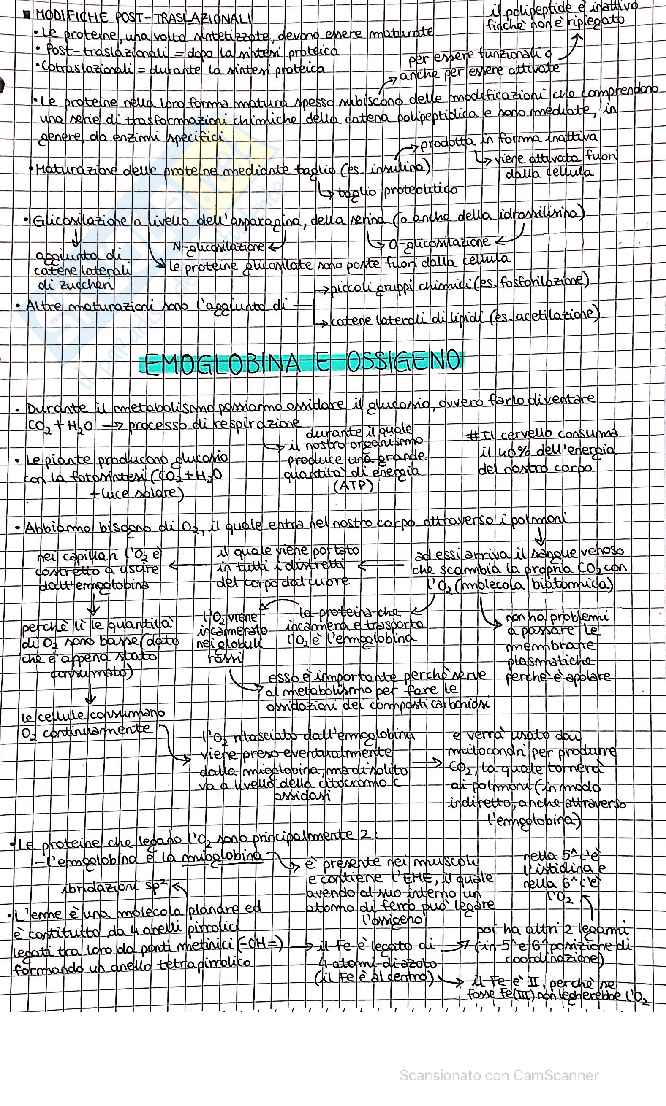 ■ MODIFICHE POST-TRASLAZIONALI
• Le proteine, una volta sintetizzate, devono essere maturate
• Post-traslazionali = dopo la sintesi proteica
• Cotraslazionali = durante la sintesi proteica
per essere funzionali o
anche per essere attivate
il polipeptide è inattivo
finché non è ripiegato
• Le proteine nella loro forma matura spesso subiscono delle modificazioni che comprendono
una serie di trasformazioni chimiche della catena polipeptidica e sono mediate, in
genere, da enzimi specifici
• Maturazione delle proteine mediante taglio (es. insulina)
→ prodotta in forma inattiva
↳ viene attivata fuori
dalla cellula
↳ taglio proteolitico
• Glicosilazione a livello dell'asparagina, della serina (o anche della idrossilisina)
N-glicosilazione
O-glicosilazione
aggiunta di
catene laterali
di zuccheri
le proteine glicosilate sono poste fuori dalla cellula
• Altre maturazioni sono l'aggiunta di
→ piccoli gruppi chimici (es. fosforilazione)
→ catene laterali di lipidi (es. acetilazione)
EMOGLOBINA E OSSIGENO
• Durante il metabolismo possiamo ossidare il glucosio, ovvero farlo diventare
CO₂ + H₂O → processo di respirazione
durante il quale
il nostro organismo
produce una grande
quantità di energia
(ATP)
# Il cervello consuma
il 40% dell'energia
del nostro corpo
• Le piante producono glucosio
con la fotosintesi (CO₂ + H₂O
+ luce solare)
• Abbiamo bisogno di O₂, il quale entra nel nostro corpo attraverso i polmoni
ad essi arriva il sangue venoso
che scambia la propria CO₂ con
l'O₂ (molecola biatomica)
il quale viene portato
in tutti i distretti
del corpo dal cuore
nei capillari l'O₂ è
costretto a uscire
dall'emoglobina
perché lì le quantità
di O₂ sono basse (dato
che è appena stato
consumato)
l'O₂ viene
incamerato
nei globuli
rossi
la proteina che
incamera e trasporta
l'O₂ è l'emoglobina
non ha problemi
a passare le
membrane
plasmatiche
perché è apolare
esso è importante perché serve
al metabolismo per fare le
ossidazioni dei composti carboniosi
le cellule consumano
O₂ continuamente
l'O₂ rilasciato dall'emoglobina
viene preso eventualmente
dalla mioglobina, ma di solito
va a livello della citocromo c
ossidasi
e verrà usato dai
mitocondri per produrre
CO₂, la quale tornerà
ai polmoni (in modo
indiretto, anche attraverso
l'emoglobina)
• Le proteine che legano l'O₂ sono principalmente 2:
- l'emoglobina e la mioglobina
è presente nei muscoli
e contiene l'EME, il quale
avendo al suo interno un
atomo di ferro può legare
l'ossigeno
nella 5^ c'è
l'istidina e
nella 6^ c'è
l'O₂
ibridazioni sp²
• L'eme è una molecola planare ed
è costituito da 4 anelli pirrolici
legati tra loro da ponti metinici (-CH=)
formando un anello tetrapirrolico
→ il Fe è legato di
4 atomi di azoto
(il Fe è al centro)
poi ha altri 2 legami
(in 5^ e 6^ posizione di
coordinazione)
→ il Fe è II, perché se
fosse Fe(III) non legherebbe l'O₂
Scansionato con CamScanner